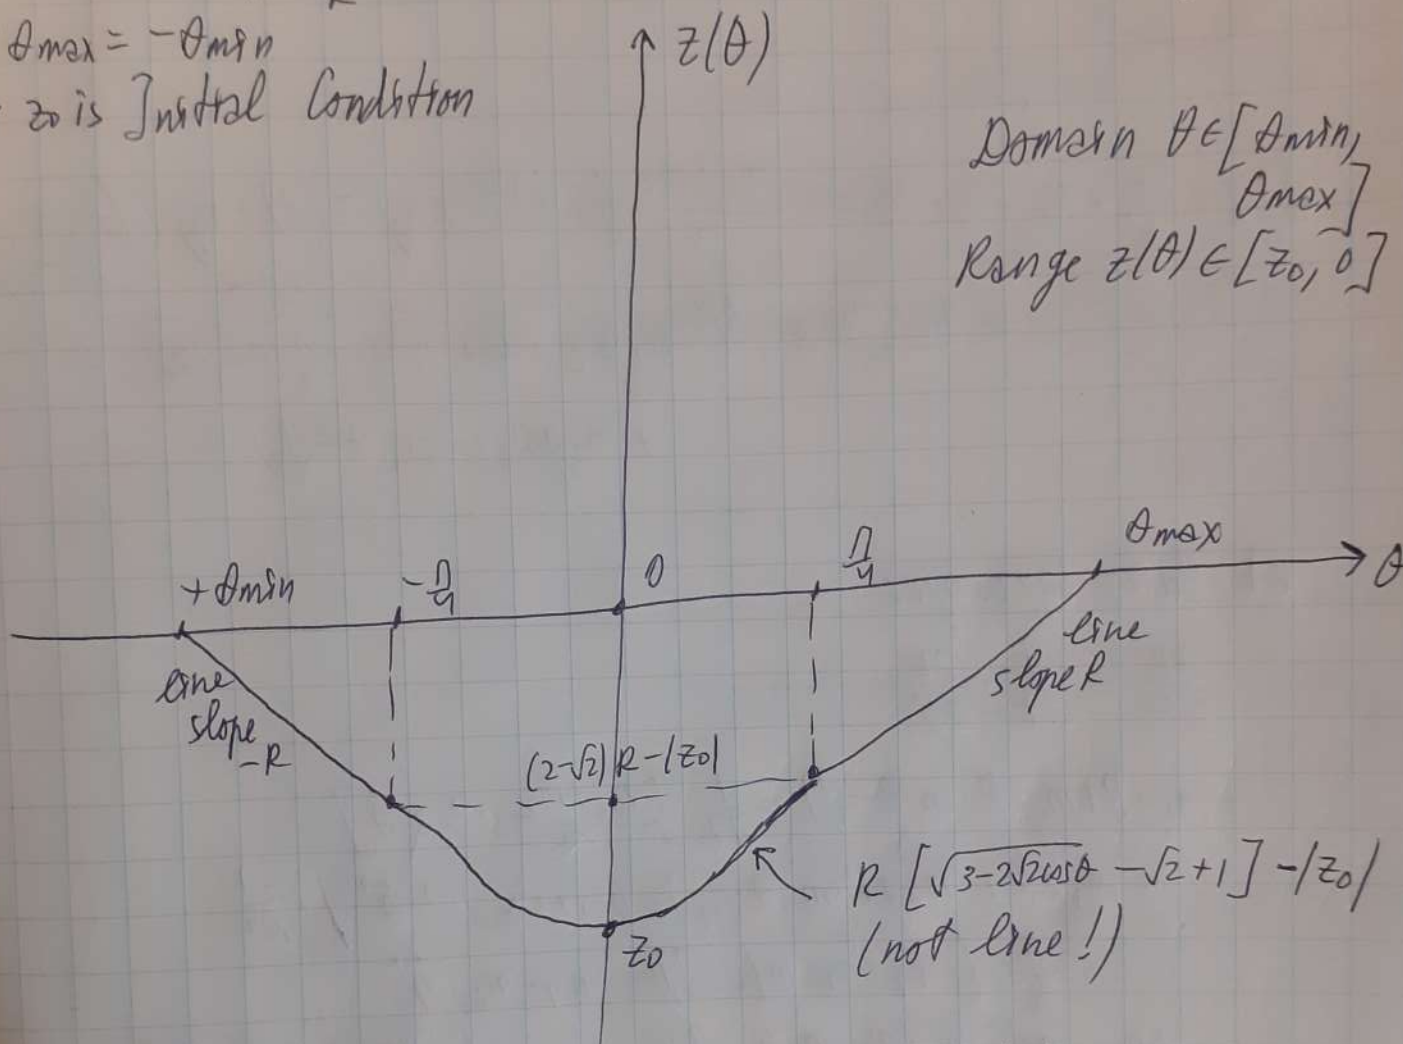 θmax = -θmin
z0 is Initial Condition
z(θ)
Domain θ∈[θmin,
θmax]
Range z(θ)∈[z0, 0]
+θmin
-π/4
0
π/4
θmax
θ
line
slope
-R
line
slope R
(2-√2)R-|z0|
z0
R[√3-2√2cosθ -√2+1]-|z0|
(not line!)